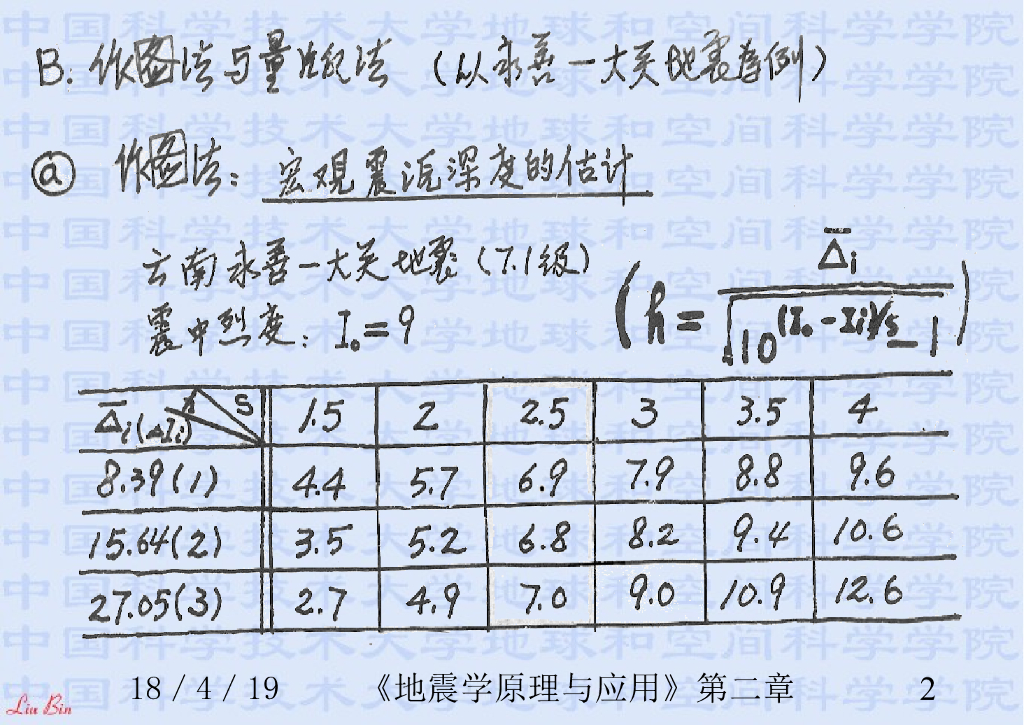 B. 作图法与量规法 (以永善一大关地震为例)
ⓐ 作图法: 宏观震源深度的估计
云南永善一大关地震 (7.1级)
震中烈度: I₀ = 9
(h = Δ̄i / √(10^((I₀ - Ii)/s) - 1))
Δ̄i(ΔIi) h S 1.5 2 2.5 3 3.5 4
8.39(1) 4.4 5.7 6.9 7.9 8.8 9.6
15.64(2) 3.5 5.2 6.8 8.2 9.4 10.6
27.05(3) 2.7 4.9 7.0 9.0 10.9 12.6
18/4/19 《地震学原理与应用》第二章 2
Liu Bin
中国科学技术大学地球和空间科学学院